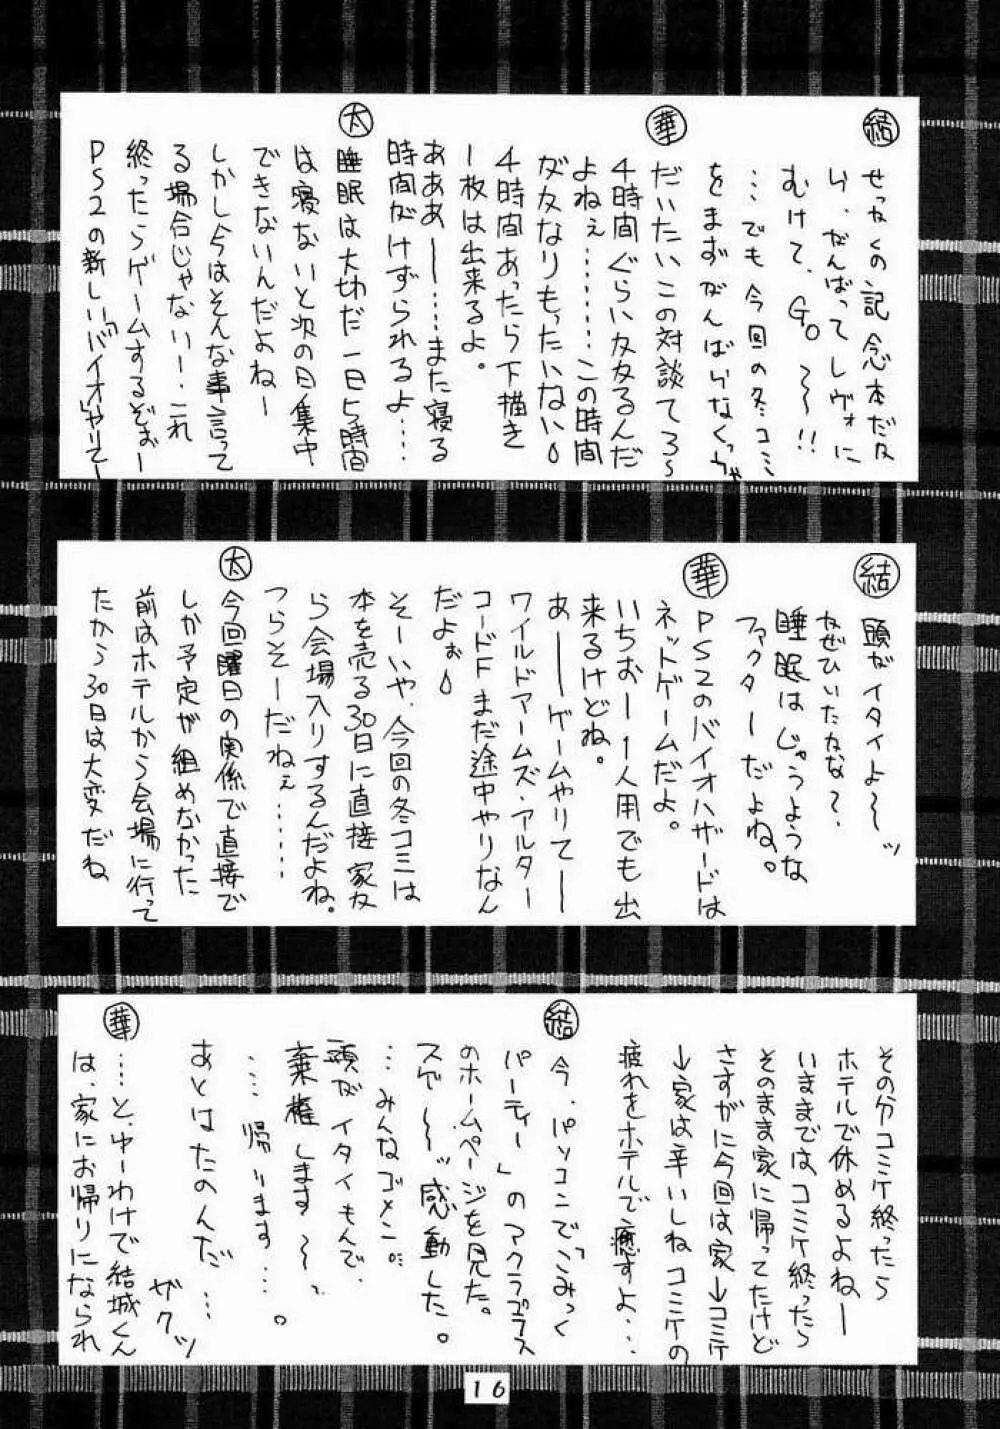 結
せっかくの記念本だな
い、がんばってレヴォに
むけて、GO〜〜!!
…でも今回の冬コミ
をまずがんばらなくっちゃ
華
だいたいこの対談てろ〜
4時間ぐらい
よねぇ………この時間
もったいない
4時間あったら下描き
一枚は出来るよ。
あああー……また寝る
時間がけずられるよ……
太
睡眠は大切だ一日5時間
は寝ないと次の日集中
できないんだよねー
しかし今はそんな事言って
る場合じゃないー・これ
終ったらゲームするぞぉー
PS2の新しい「バイオ」やりてー
結
頭がイタイよ〜ッ
なぜひいたなな?、
睡眠はじゅうような
ファクターだよね。
華
PS2のバイオハザードは
ネットゲームだよ。
いちおー1人用でも出
来るけどね。
あーーゲームやりてー
ワイルドアームズ・アルター
コードFまだ途中やりなん
だよぉ
そーいや、今回の冬コミは
本を売る30日に直接家か
ら会場入りするんだよね。
つらそーだねぇ……
太
今回曜日の関係で直接で
しか予定が組めなかった
前はホテルから会場に行って
たから30日は大変だね
その分コミケ終ったら
ホテルで休めるよねー
いままではコミケ終ったら
そのまま家に帰ってたけど
さすがに今回は家→コミケ
→家は辛いしね コミケの
疲れをホテルで癒すよ…
結
今、パソコンで「こみっく
パーティー」のアクアプラス
のホームページを見た。
スゲ〜〜ッ感動した。
…みんなゴメン。
頭がイタイもんで、
棄権します〜っ
…帰ります…。
あとはたのんだ…
ザクッ
華
……と、ゆーわけで結城くん
は、家にお帰りになられ
16